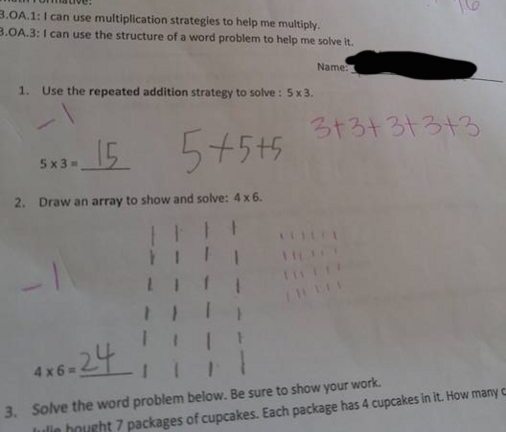 16
3.OA.1: I can use multiplication strategies to help me multiply.
3.OA.3: I can use the structure of a word problem to help me solve it.
Name:
1. Use the repeated addition strategy to solve : 5 x 3.
-1
5 x 3 = 15 5+5+5 3+3+3+3+3
2. Draw an array to show and solve: 4 x 6.
-1
4 x 6 = 24
3. Solve the word problem below. Be sure to show your work.
bought 7 packages of cupcakes. Each package has 4 cupcakes in it. How many